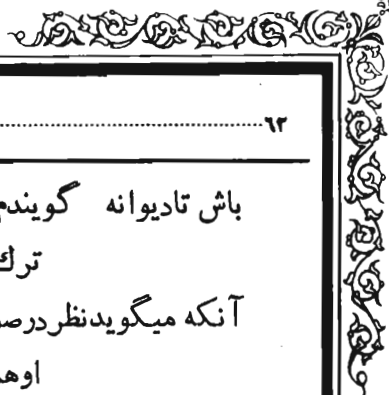 ۶۲
باش تا دیوانه گویندم
ترك
آنکه میگوید نظر در